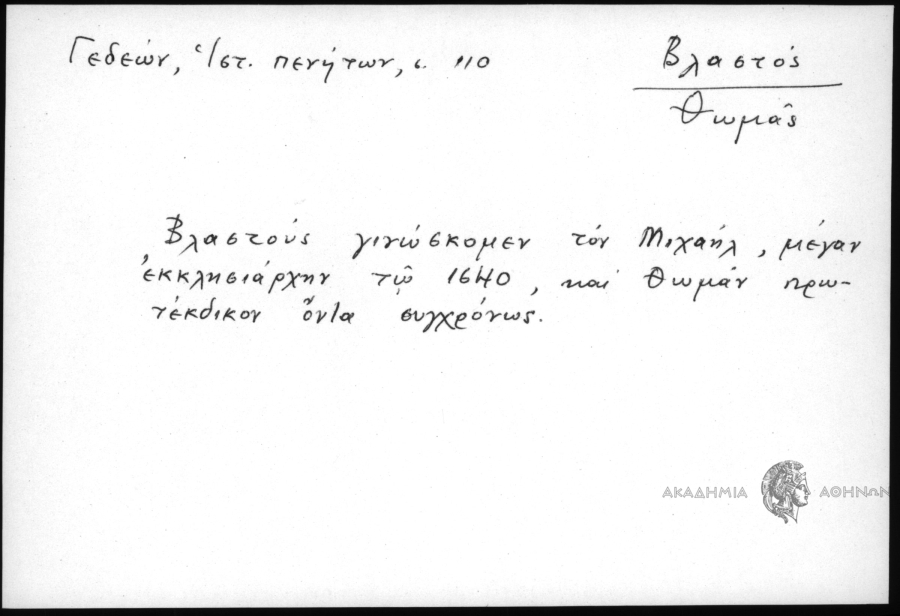 Γεδεών, Ἱστ. πενήτων, σ. 110
Βλαστός
Θωμᾶς
Βλαστούς γινώσκομεν τόν Μιχαήλ, μέγαν
ἐκκλησιάρχην τῷ 1640, καί Θωμάν πρω-
τέκδικον ὄντα συγχρόνως.
ΑΚΑΔΗΜΙΑ ΑΘΗΝΩΝ